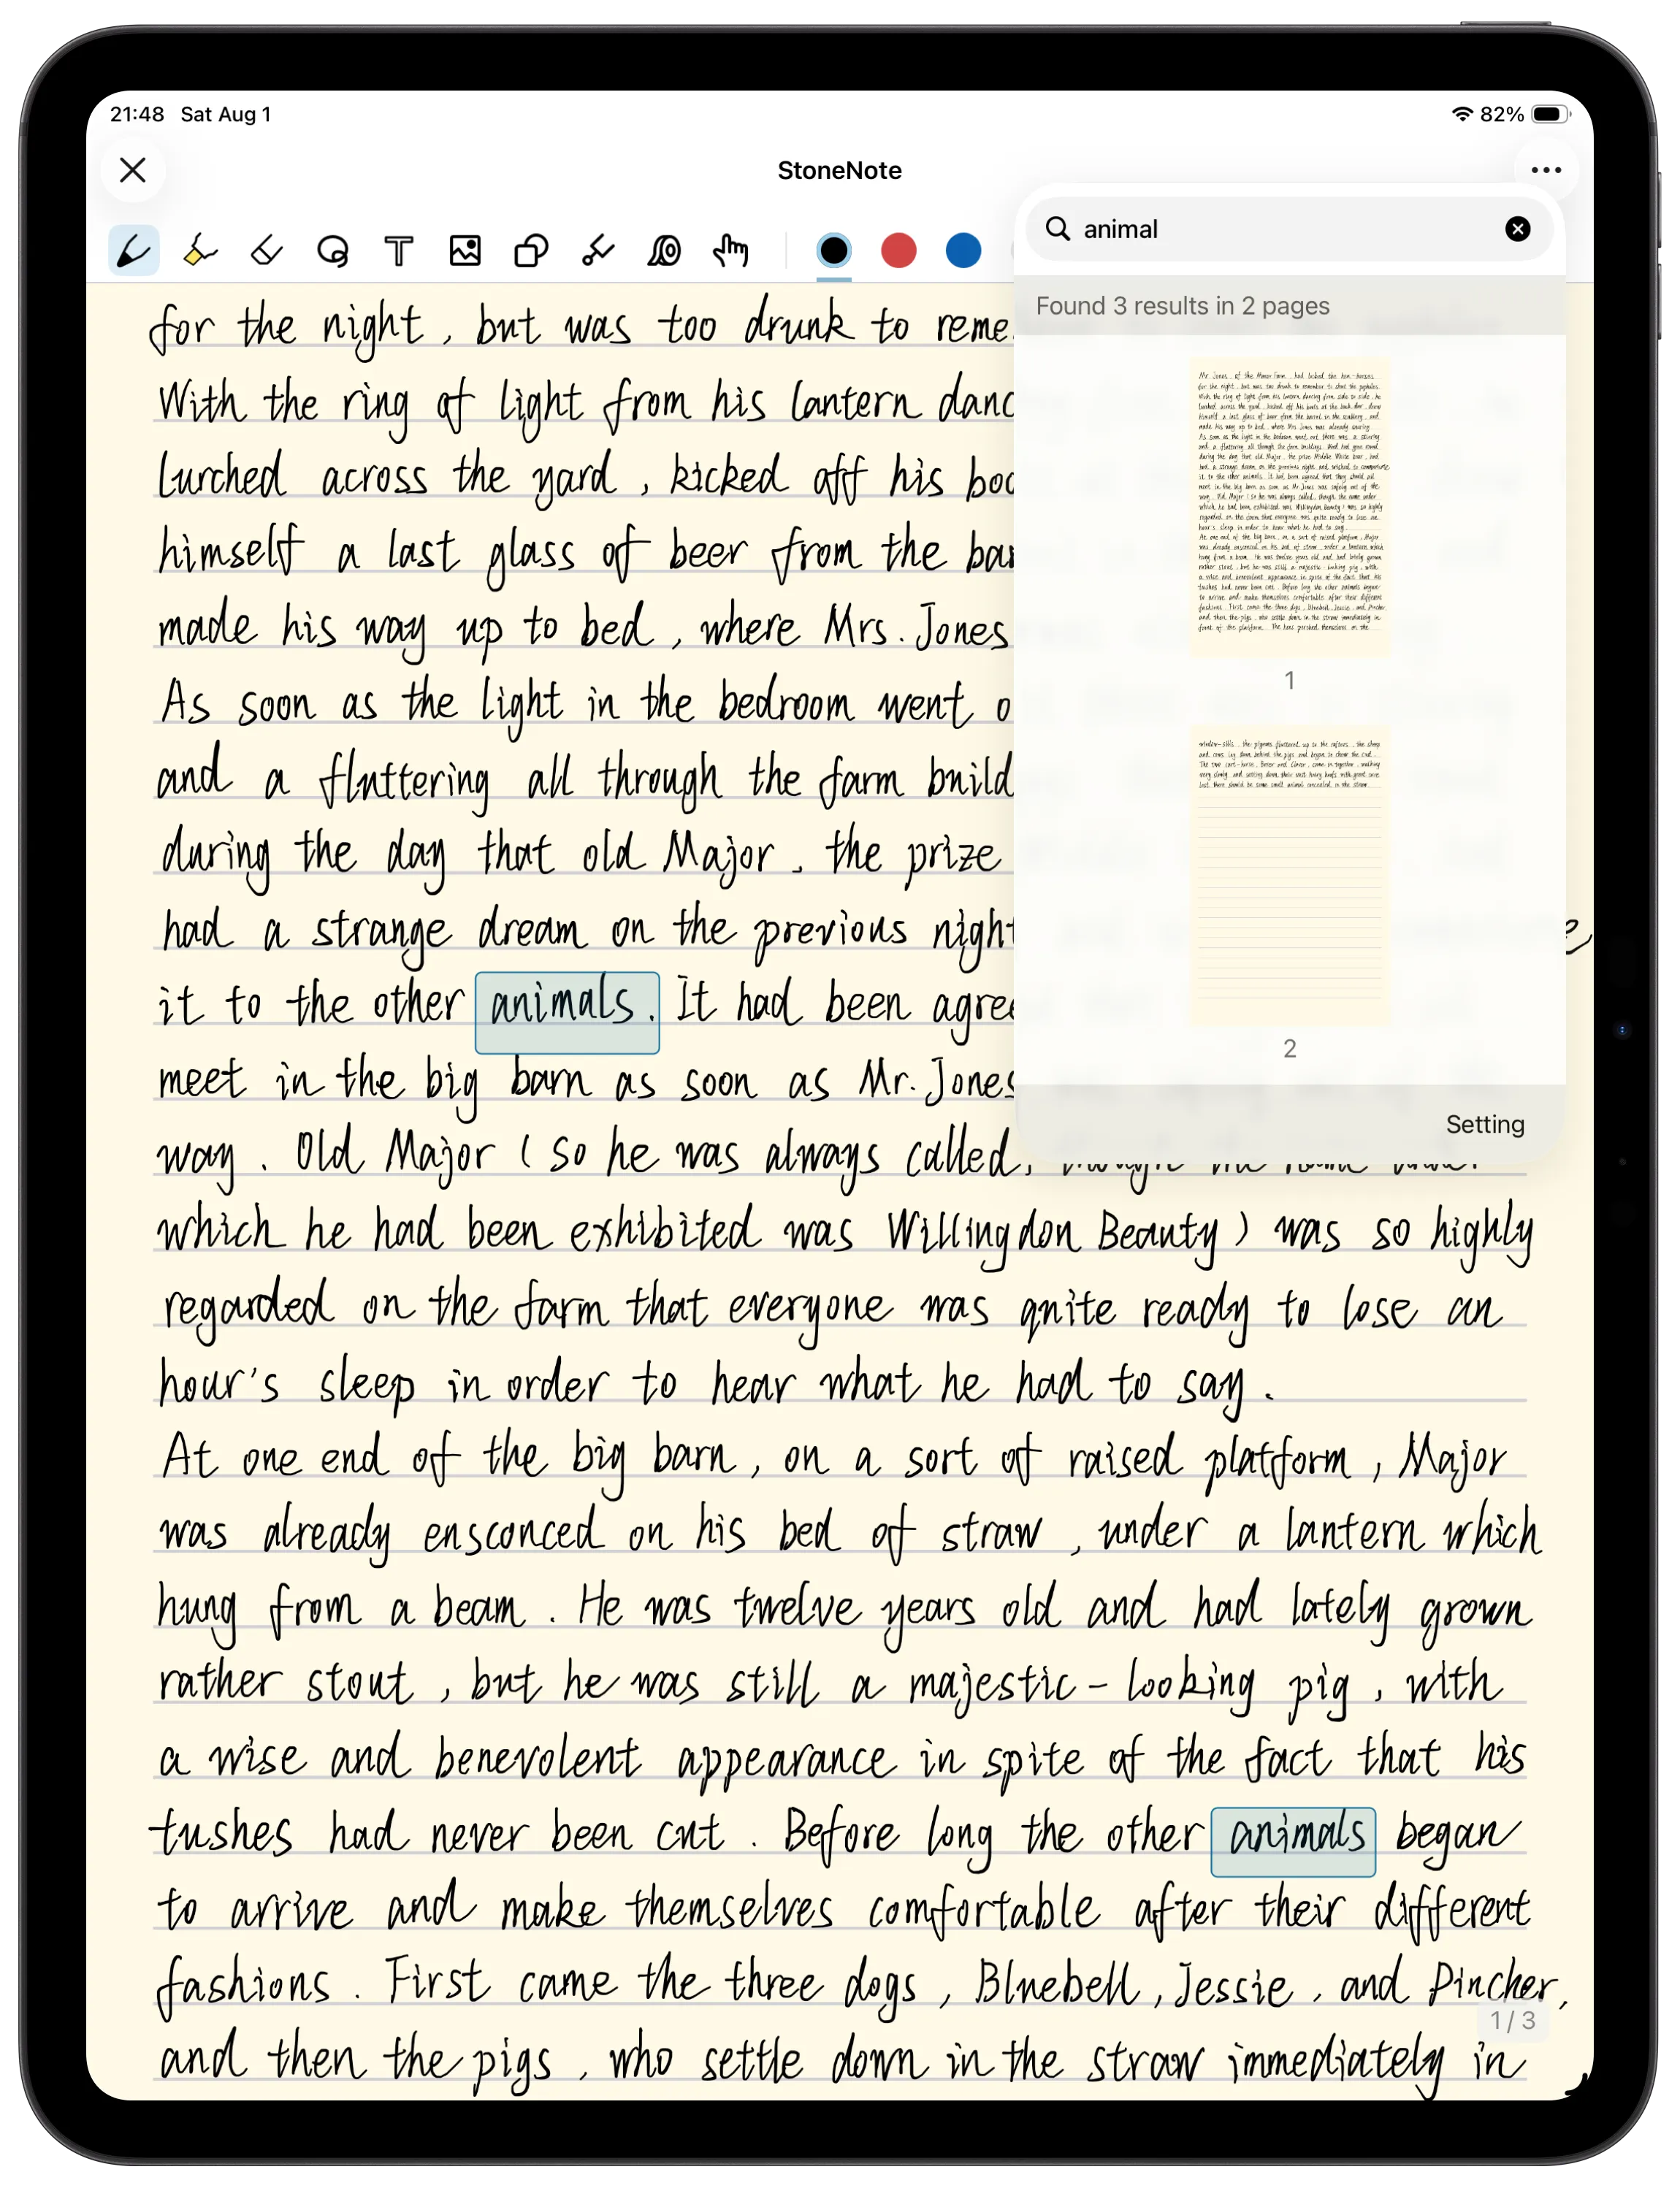 21:48 Sat Aug 1
82%
StoneNote
animal
Found 3 results in 2 pages
for the night, but was too drunk to reme
With the ring of light from his lantern danc
lurched across the yard, kicked off his boo
himself a last glass of beer from the bar
made his way up to bed, where Mrs. Jones
As soon as the light in the bedroom went o
and a fluttering all through the farm build
during the day that old Major, the prize
had a strange dream on the previous night
it to the other animals. It had been agree
meet in the big barn as soon as Mr. Jones
way. Old Major (so he was always called, though the name under
which he had been exhibited was Willingdon Beauty) was so highly
regarded on the farm that everyone was quite ready to lose an
hour's sleep in order to hear what he had to say.
At one end of the big barn, on a sort of raised platform, Major
was already ensconced on his bed of straw, under a lantern which
hung from a beam. He was twelve years old and had lately grown
rather stout, but he was still a majestic-looking pig, with
a wise and benevolent appearance in spite of the fact that his
tushes had never been cut. Before long the other animals began
to arrive and make themselves comfortable after their different
fashions. First came the three dogs, Bluebell, Jessie, and Pincher,
and then the pigs, who settle down in the straw immediately in
1
2
Setting
1/3